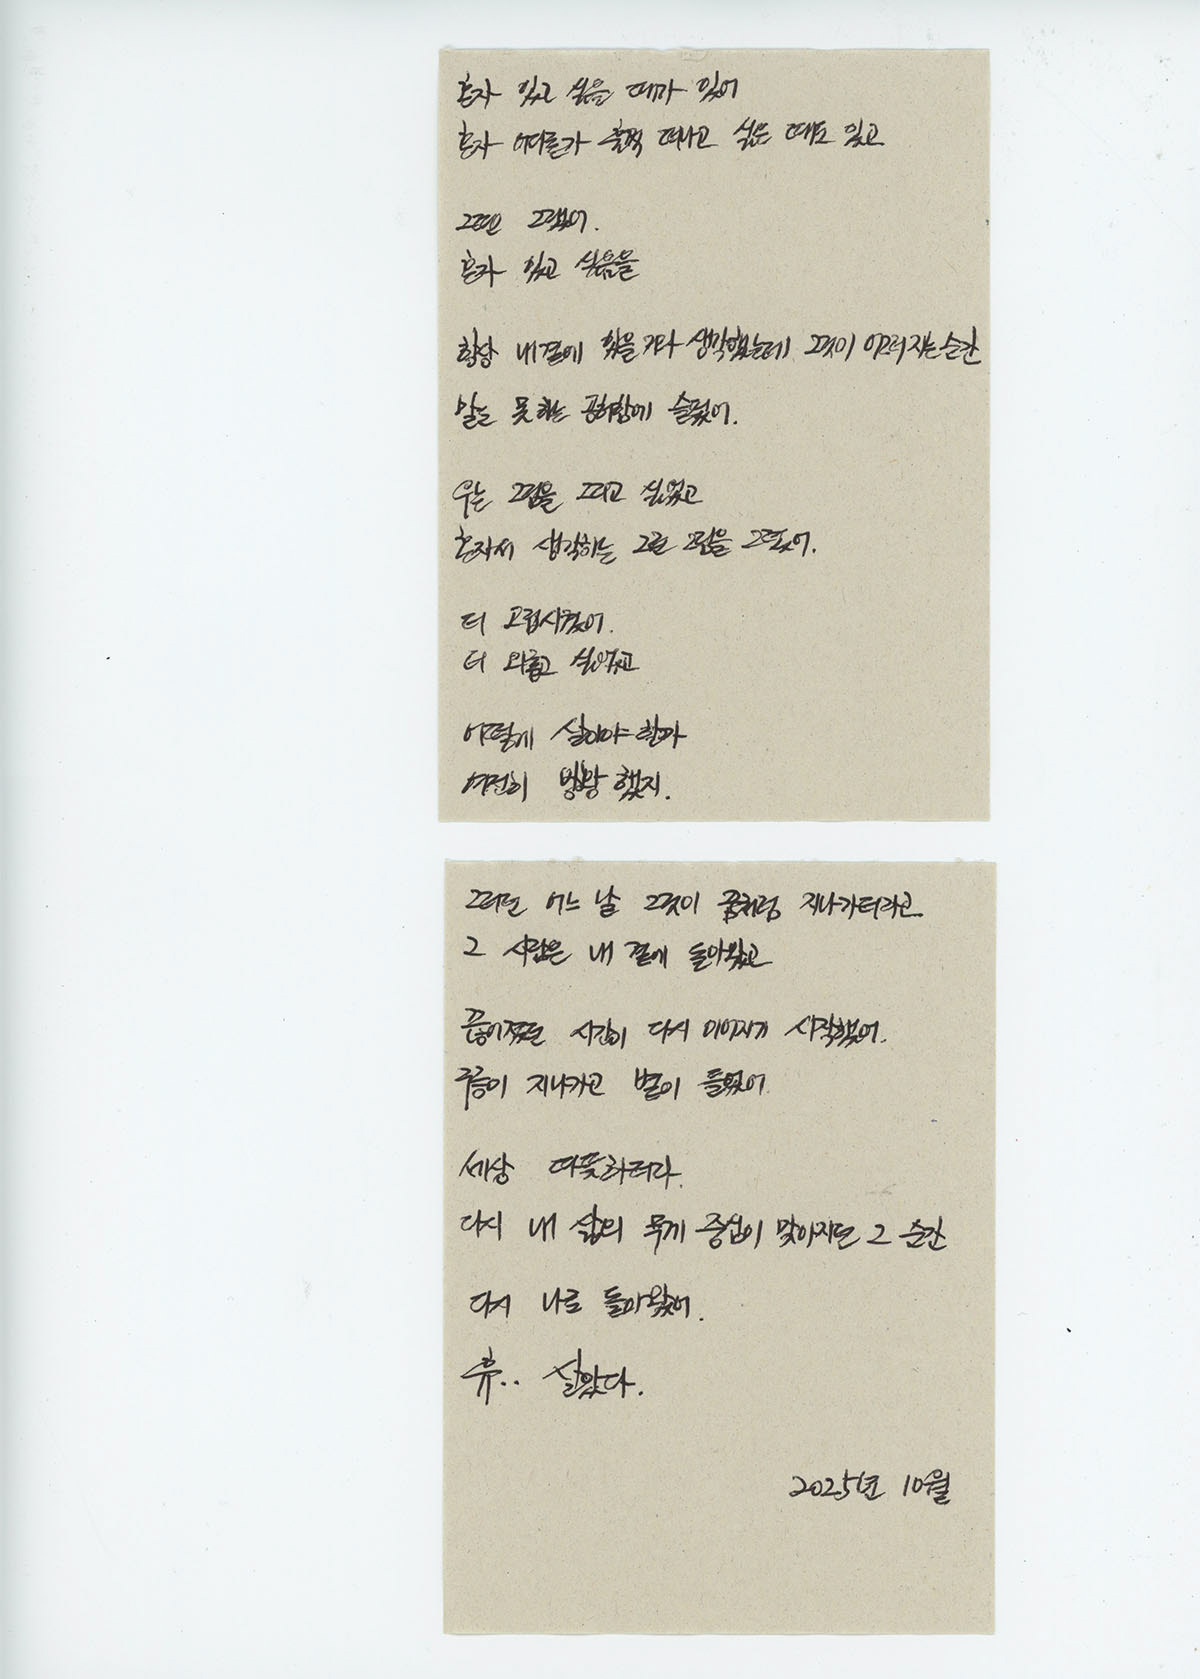 혼자 있고 싶을 때가 있어
혼자 어디론가 훌쩍 떠나고 싶은 때도 있고
그땐 그랬어.
혼자 있고 싶음을
항상 내 곁에 있을 거라 생각했는데 그것이 어그러지는 순간
말도 못하는 공허함에 슬펐어.
우는 그림을 그리고 싶었고
혼자서 생각하는 그런 그림을 그렸어.
더 고립시켰어.
더 외롭고 싶었고
어떻게 살아야 할까
여전히 방황했지.
그러던 어느 날 그것이 꿈처럼 지나가더라고
그 사람은 내 곁에 돌아왔고
끊어졌던 시간이 다시 이어지기 시작했어.
구름이 지나가고 볕이 들었어
세상 따뜻하더라.
다시 내 삶의 무게 중심이 맞아지던 그 순간
다시 나로 돌아왔어.
휴.. 살았다.
2025년 10월